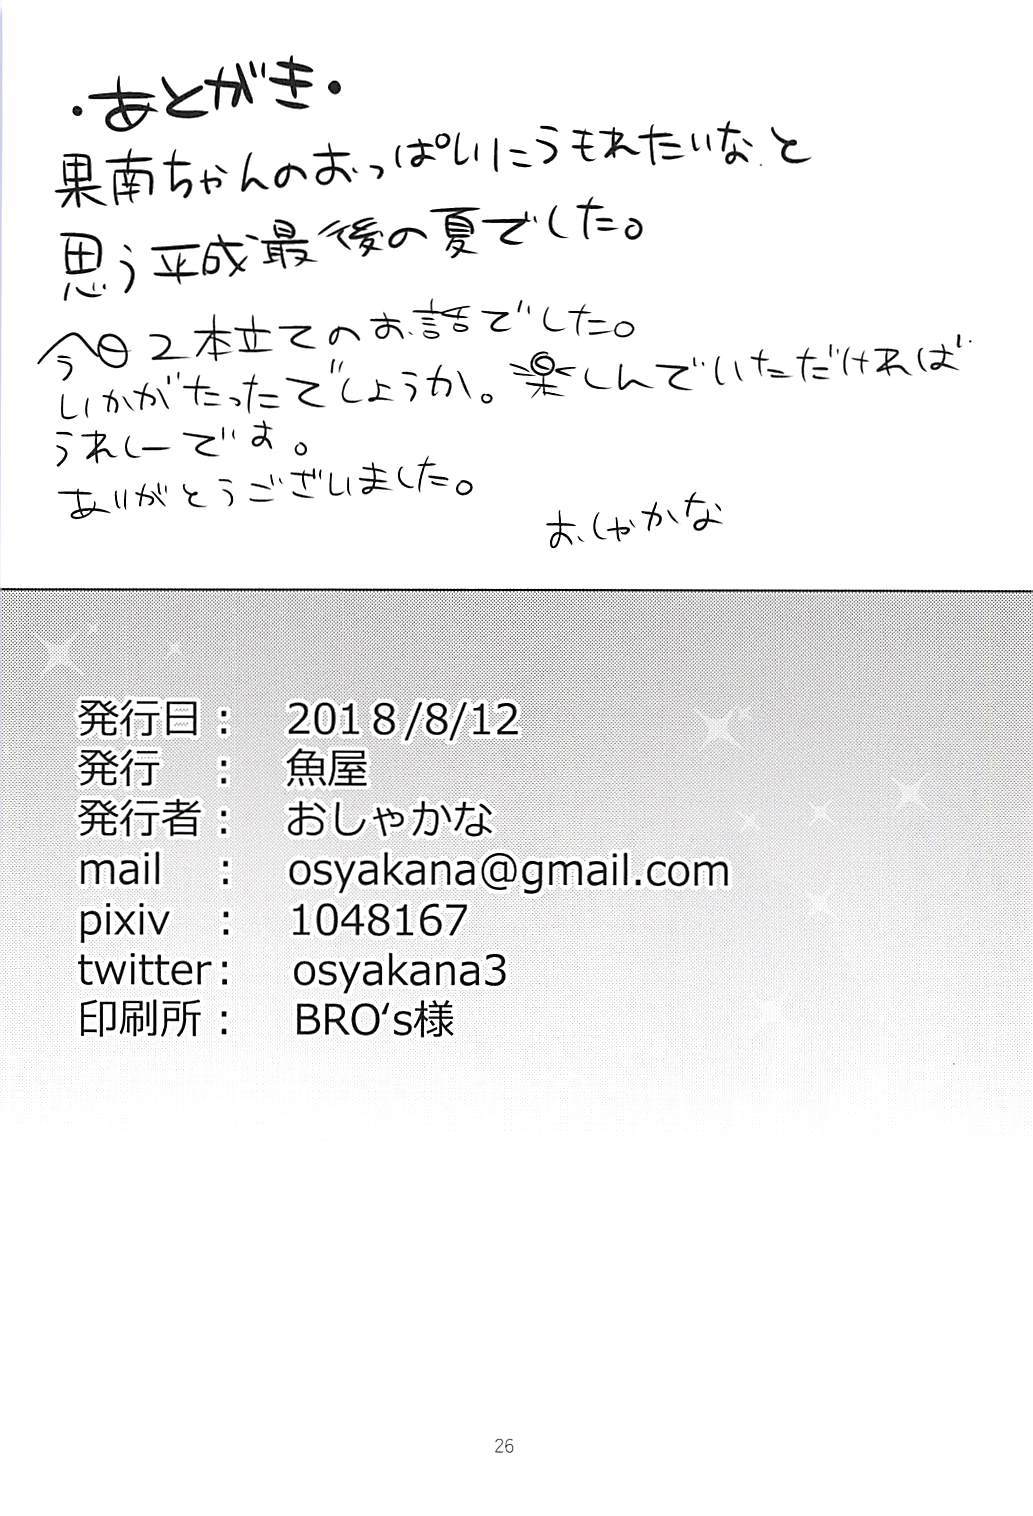 ・あとがき・
果南ちゃんのおっぱいにうもれたいなと
思う平成最後の夏でした。
今回2本立てのお話でした。
いかがだったでしょうか。楽しんでいただければ
うれしーです。
ありがとうございました。
おしゃかな
発行日： 2018/8/12
発行 ： 魚屋
発行者： おしゃかな
mail ： osyakana@gmail.com
pixiv ： 1048167
twitter： osyakana3
印刷所： BRO‘s様
26